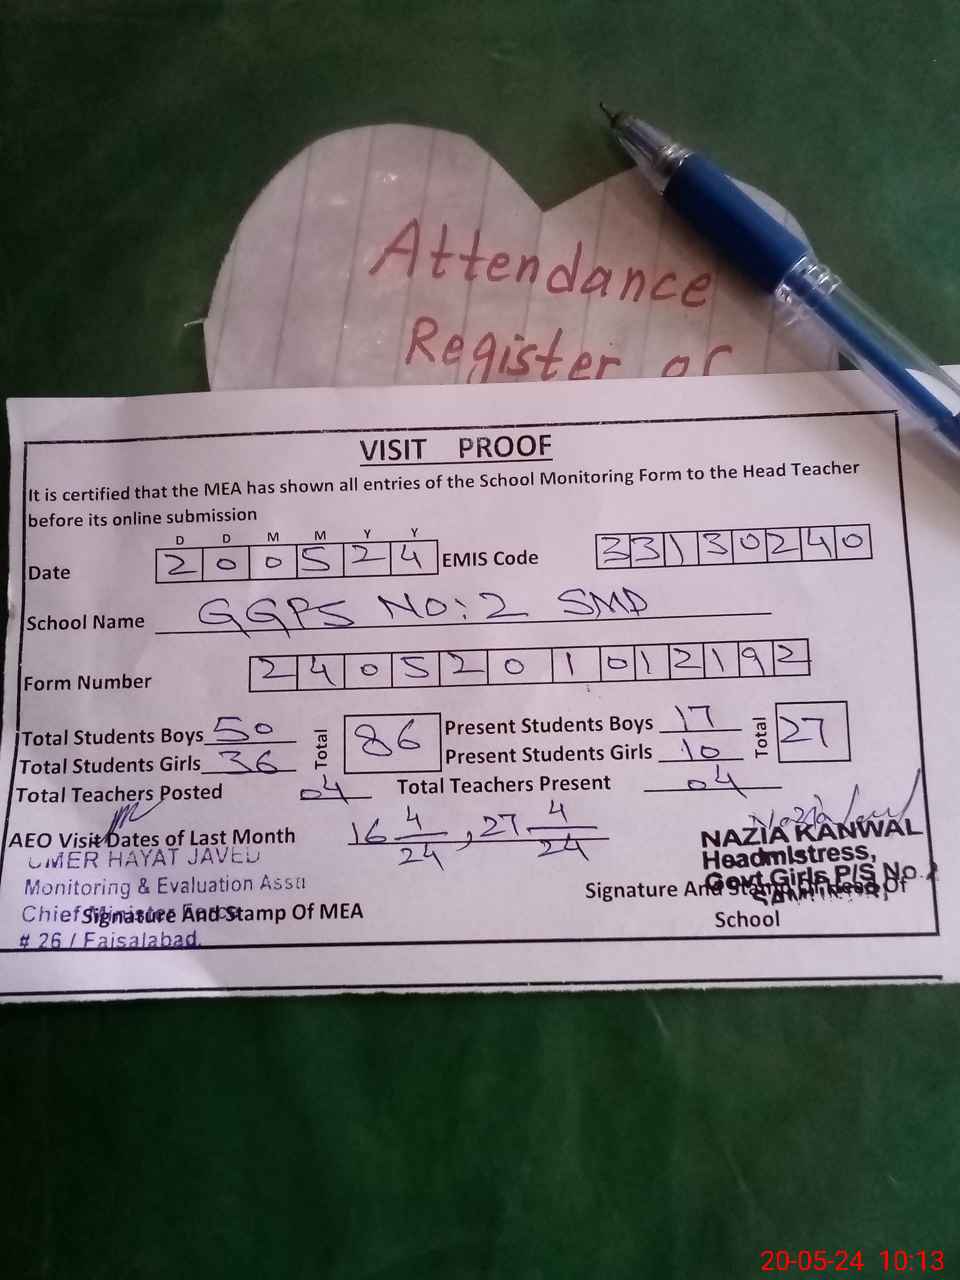 Attendance
Register of
VISIT PROOF
It is certified that the MEA has shown all entries of the School Monitoring Form to the Head Teacher
before its online submission
D D M M Y Y
Date 2 0 0 5 2 4 EMIS Code 3 3 1 3 0 2 4 0
School Name GGPS No:2 SMD
Form Number 2 4 0 5 2 0 1 0 1 2 1 9 2
Total Students Boys 50 Total 86 Present Students Boys 17 Total 27
Total Students Girls 36 Present Students Girls 10
Total Teachers Posted 04 Total Teachers Present 04
AEO Visit Dates of Last Month 16 4/24, 27 4/24
UMER HAYAT JAVED
Monitoring & Evaluation Asst
Chief Minister
Signature And Stamp Of MEA
# 26 / Faisalabad.
NAZIA KANWAL
Headmistress,
Govt.Girls P/S No.2
Signature And Stamp Of Head Of
School
20-05-24 10:13